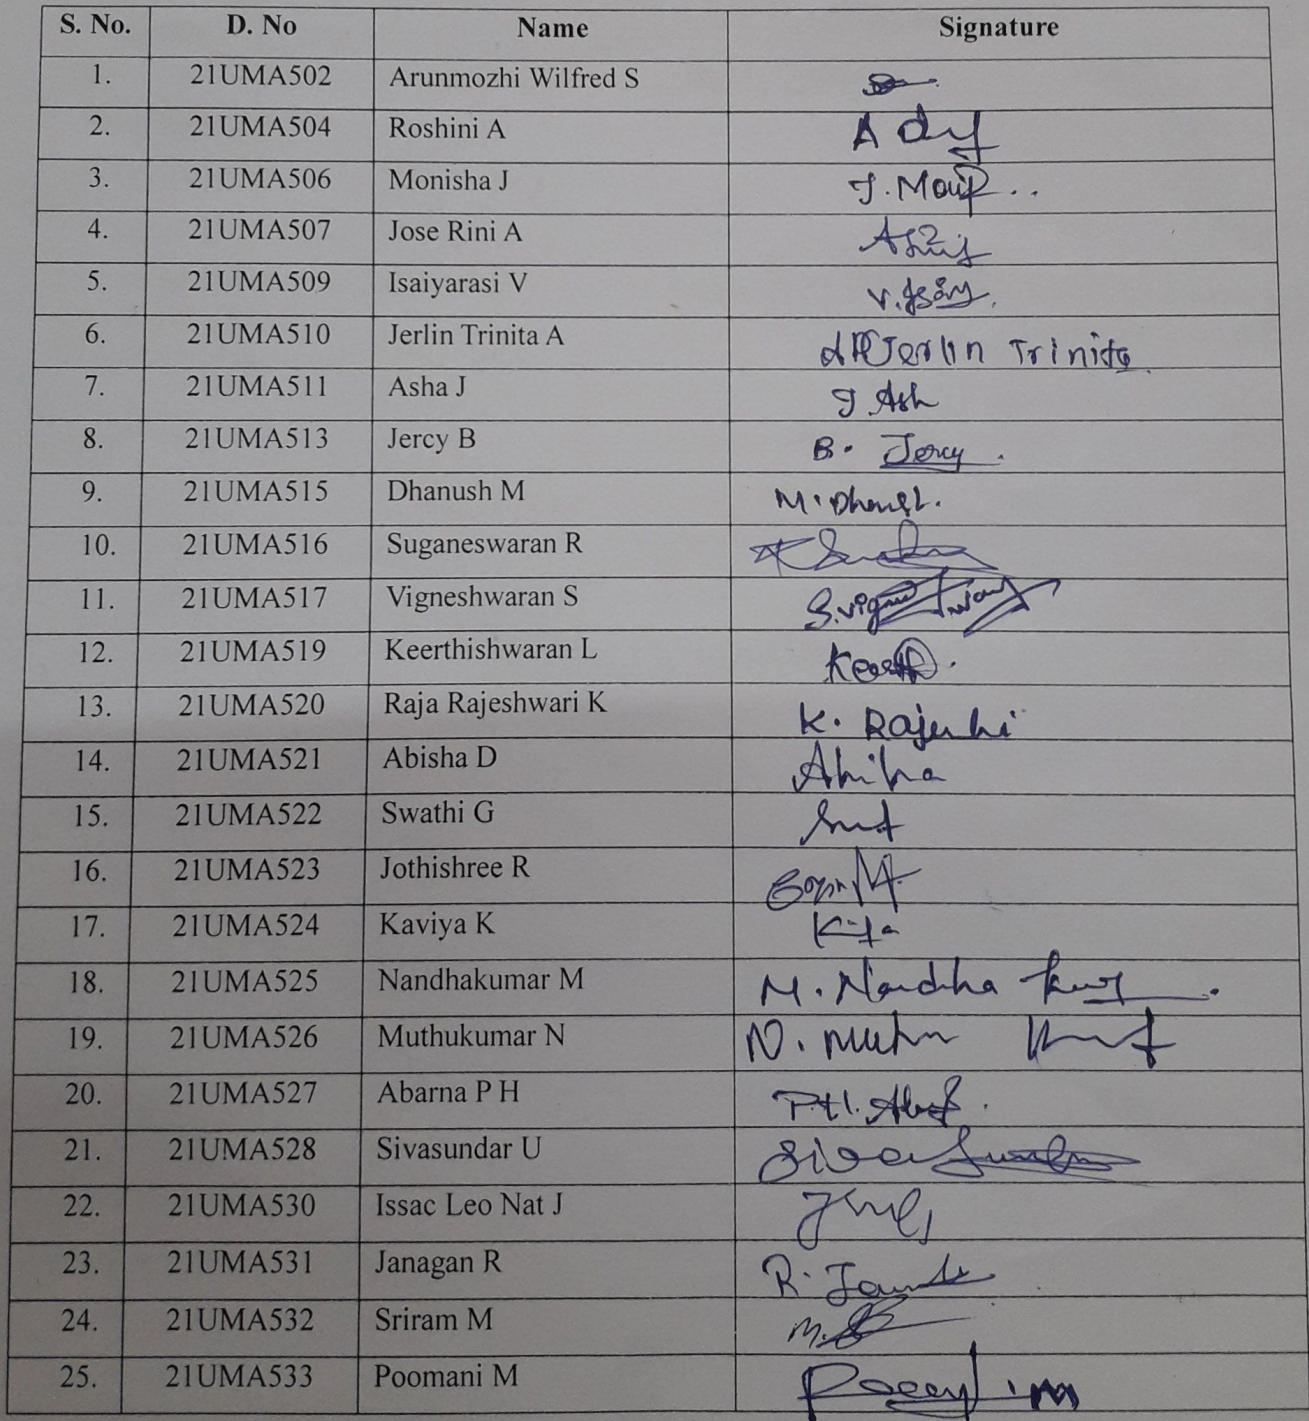 S. No. D. No Name Signature
1. 21UMA502 Arunmozhi Wilfred S
2. 21UMA504 Roshini A A
3. 21UMA506 Monisha J J.
4. 21UMA507 Jose Rini A
5. 21UMA509 Isaiyarasi V V.
6. 21UMA510 Jerlin Trinita A Jerlin Trinita
7. 21UMA511 Asha J J Ash
8. 21UMA513 Jercy B B. Jercy.
9. 21UMA515 Dhanush M M.
10. 21UMA516 Suganeswaran R
11. 21UMA517 Vigneshwaran S
12. 21UMA519 Keerthishwaran L
13. 21UMA520 Raja Rajeshwari K K.
14. 21UMA521 Abisha D
15. 21UMA522 Swathi G
16. 21UMA523 Jothishree R
17. 21UMA524 Kaviya K
18. 21UMA525 Nandhakumar M M. Nandha
19. 21UMA526 Muthukumar N N.
20. 21UMA527 Abarna P H P.H.
21. 21UMA528 Sivasundar U
22. 21UMA530 Issac Leo Nat J
23. 21UMA531 Janagan R R.
24. 21UMA532 Sriram M M.
25. 21UMA533 Poomani M